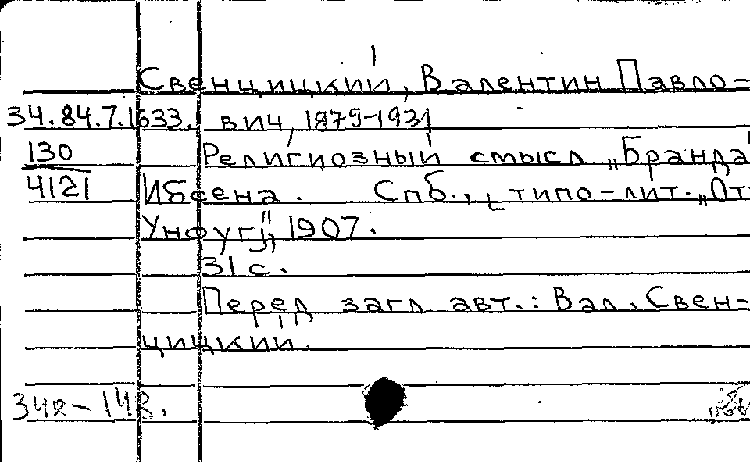 Свенцицкий, Валентин Павло-
34.84.7.1633. вич, 1879-1931
130 Религиозный смысл „Бранда“
4121 Ибсена. Спб., типо-лит. „От
Унфуг“, 1907.
31 с.
Перед загл. авт.: Вал. Свен-
цицкий.